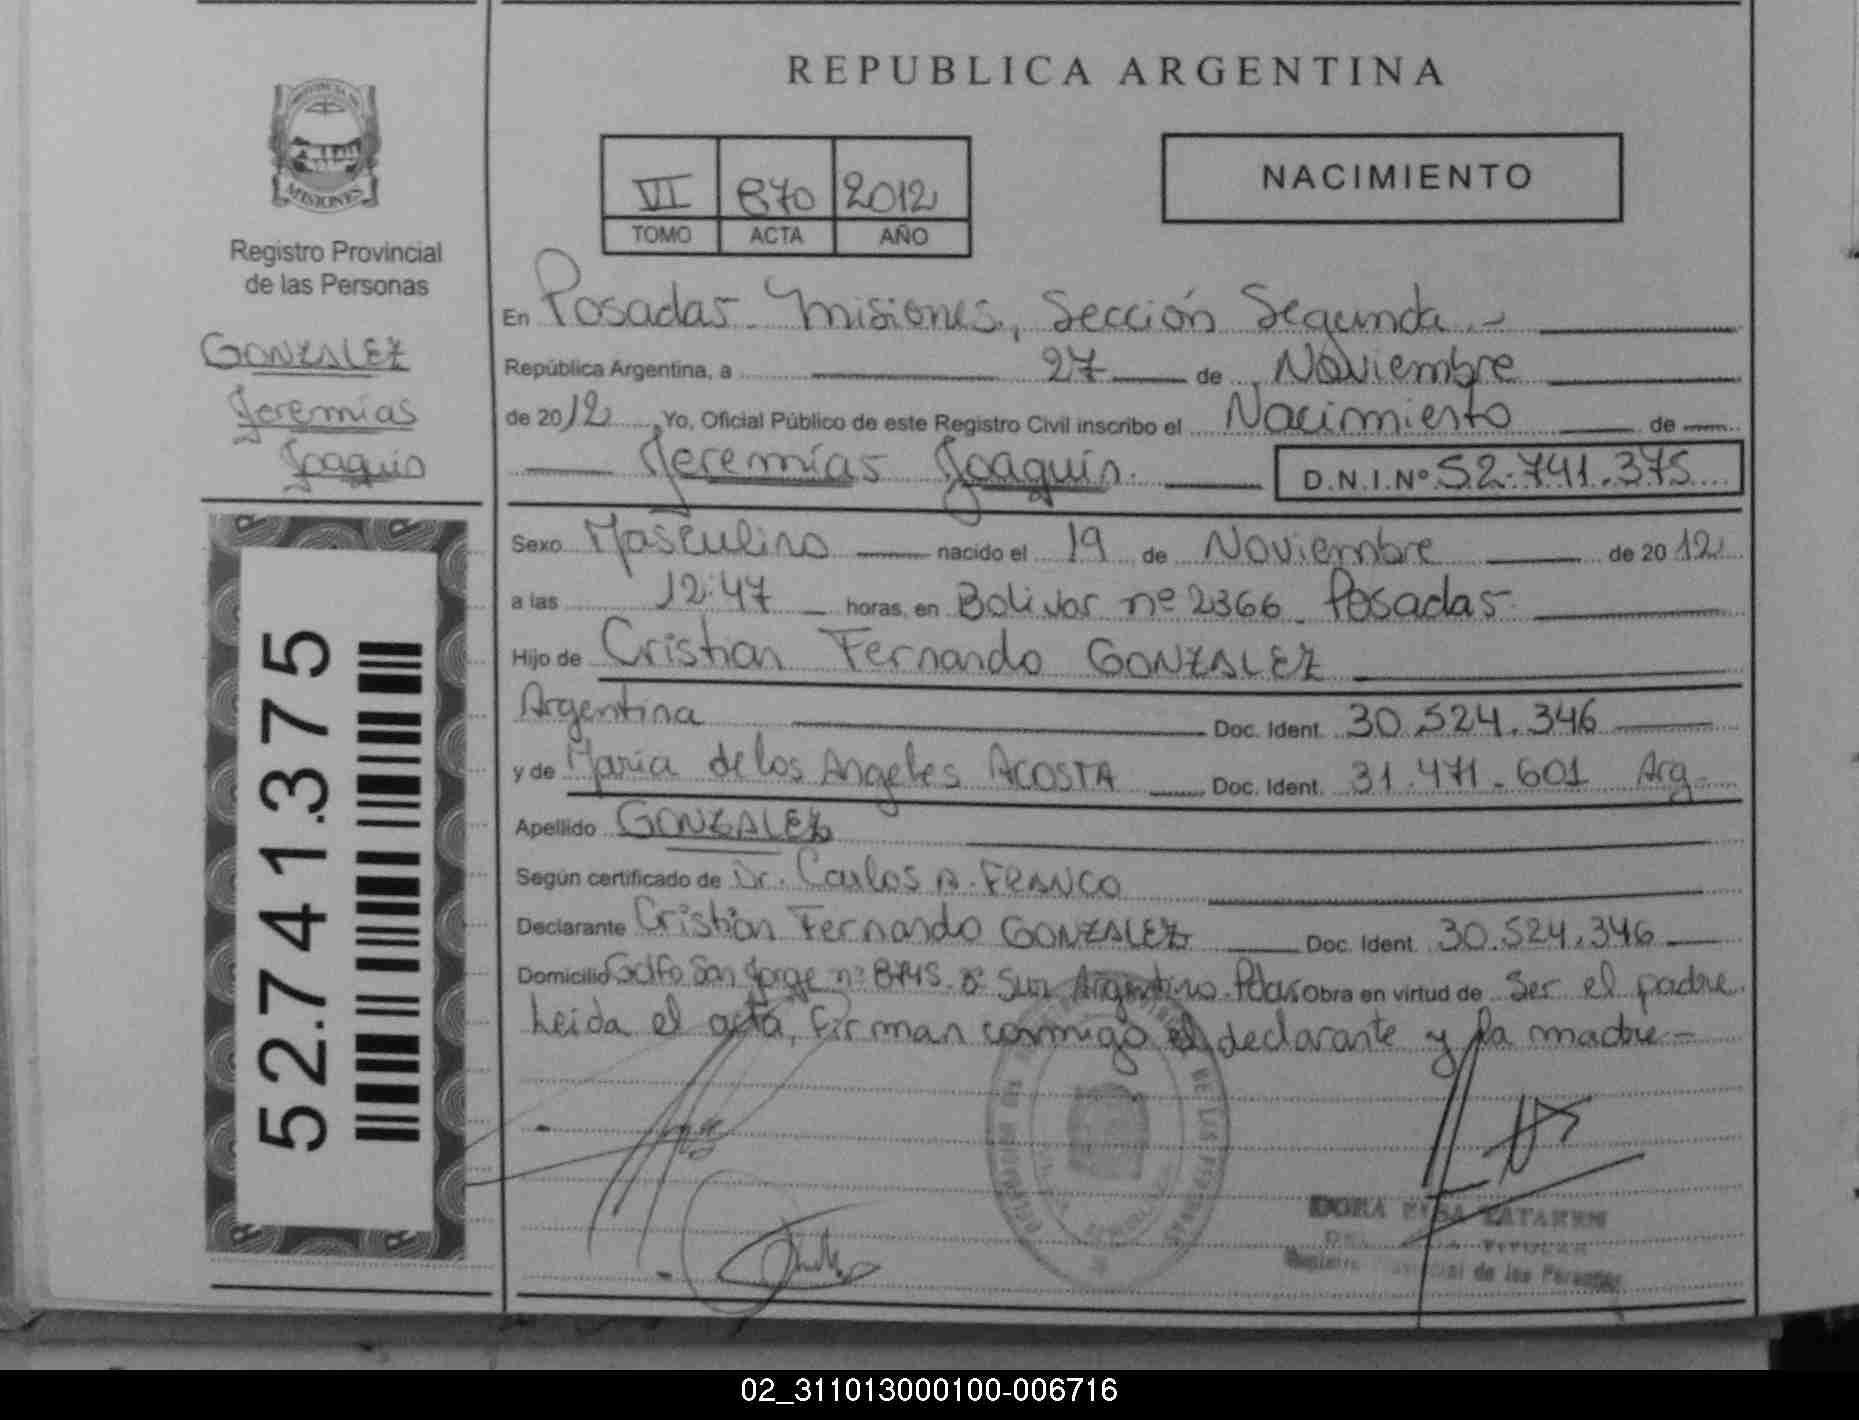 REPUBLICA ARGENTINA
PROVINCIA DE
MISIONES
Registro Provincial
de las Personas
GONZALEZ
Jeremías
Joaquin
52.741.375
VI 870 2012
TOMO ACTA AÑO
NACIMIENTO
En Posadas - Misiones, Sección Segunda.-
República Argentina, a 27 de Noviembre
de 2012 Yo, Oficial Público de este Registro Civil inscribo el Nacimiento de
Jeremías Joaquin. D.N.I.Nº 52.741.375
Sexo Masculino nacido el 19 de Noviembre de 2012
a las 12:47 horas, en Bolivar nº 2366 Posadas
Hijo de Cristian Fernando GONZALEZ
Argentina Doc. Ident. 30.524.346
y de Maria de los Angeles ACOSTA Doc. Ident. 31.471.601 Arg.
Apellido GONZALEZ
Según certificado de Dr. Carlos A. FRANCO
Declarante Cristian Fernando GONZALEZ Doc. Ident. 30.524.346
Domicilio Golfo San Jorge nº 8745 Bº Sur Argentino. Pdas Obra en virtud de Ser el padre
Leida el acta, firman conmigo el declarante y la madre-
DE LAS PERSONAS
DORA ELSA
TITULAR
de las Personas
02_311013000100-006716